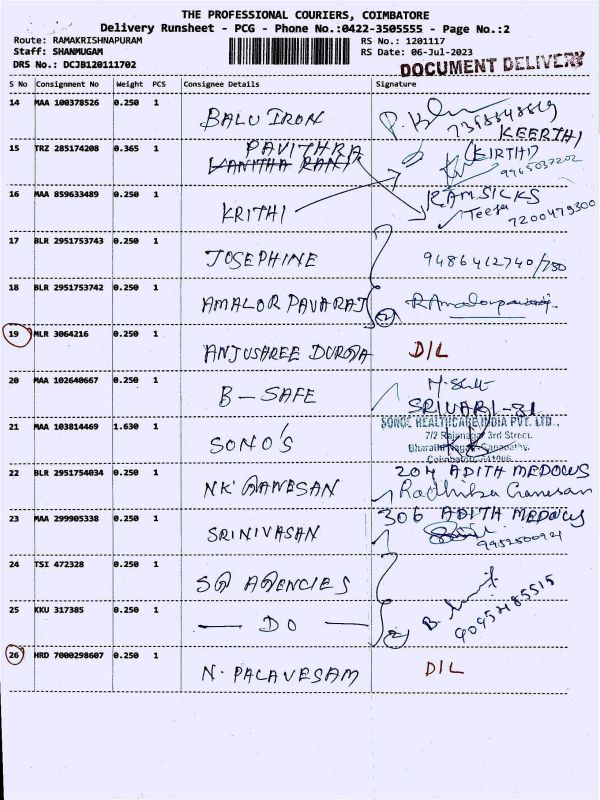 THE PROFESSIONAL COURIERS, COIMBATORE
Delivery Runsheet - PCG - Phone No.:0422-3505555 - Page No.:2
Route: RAMAKRISHNAPURAM
RS No.: 1201117
Staff: SHANMUGAM
RS Date: 06-Jul-2023
DRS No.: DCJB120111702
DOCUMENT DELIVERY
S No Consignment No Weight PCS Consignee Details Signature
14 MAA 100378526 0.250 1 BALU IRON
KEERTHI
15 TRZ 285174208 0.365 1 PAVITHRA
VANITHA RANI
(KIRTHI)
9965037202
16 MAA 859633489 0.250 1 KRITHI
RAM SILKS
7200479300
17 BLR 2951753743 0.250 1 JOSEPHINE 9486412740/750
18 BLR 2951753742 0.250 1 AMALOR PAVARAJ 2
19 MLR 3064216 0.250 1 ANJUSHREE DURGA D/L
20 MAA 102640667 0.250 1 B-SAFE
SRIVARI-31
21 MAA 103814469 1.630 1 SONO'S
HEALTHCARE INDIA PVT. LTD.,
7/2 3rd Street,
22 BLR 2951754034 0.250 1 NK GANESAN 204 ADITH MEDOWS
Radhika Ganesan
23 MAA 299905338 0.250 1 SRINIVASAN 306 ADITH MEDOWS
9952500921
24 TSI 472328 0.250 1 SG AGENCIES
25 KKU 317385 0.250 1 — DO — 2
26 HRD 7000298607 0.250 1 N. PALAVESAM D/L